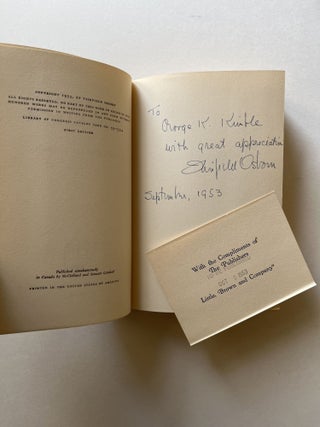 COPYRIGHT 1953, BY FAIRFIELD OSBORN
ALL RIGHTS RESERVED. NO PART OF THIS BOOK IN EXCESS OF FIVE
HUNDRED WORDS MAY BE REPRODUCED IN ANY FORM WITHOUT
PERMISSION IN WRITING FROM THE PUBLISHER
LIBRARY OF CONGRESS CATALOG CARD NO.
FIRST EDITION
Published simultaneously
in Canada by McClelland and Stewart Limited
PRINTED IN THE UNITED STATES OF AMERICA
To
George K. Kimble
with great appreciation
Fairfield Osborn
September, 1953
With the Compliments of
The Publishers
OCT 1953
Little, Brown and Company